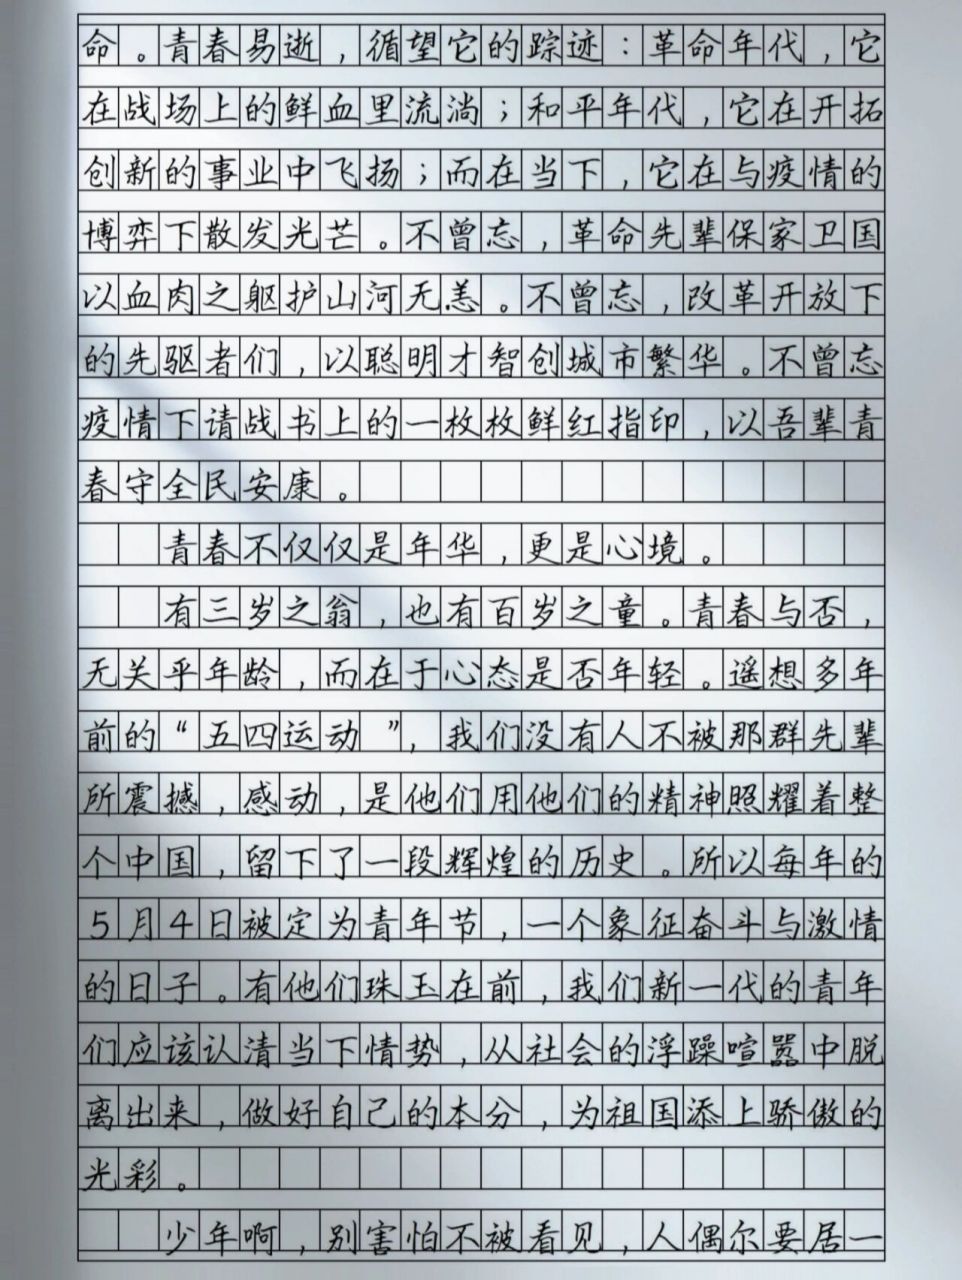 命。青春易逝，循望它的踪迹：革命年代，它
在战场上的鲜血里流淌；和平年代，它在开拓
创新的事业中飞扬；而在当下，它在与疫情的
博弈下散发光芒。不曾忘，革命先辈保家卫国
以血肉之躯护山河无恙。不曾忘，改革开放下
的先驱者们，以聪明才智创城市繁华。不曾忘
疫情下请战书上的一枚枚鲜红指印，以吾辈青
春守全民安康。
青春不仅仅是年华，更是心境。
有三岁之翁，也有百岁之童。青春与否，
无关乎年龄，而在于心态是否年轻。遥想多年
前的“五四运动”，我们没有人不被那群先辈
所震撼，感动，是他们用他们的精神照耀着整
个中国，留下了一段辉煌的历史。所以每年的
5月4日被定为青年节，一个象征奋斗与激情
的日子。有他们珠玉在前，我们新一代的青年
们应该认清当下情势，从社会的浮躁喧嚣中脱
离出来，做好自己的本分，为祖国添上骄傲的
光彩。
少年啊，别害怕不被看见，人偶尔要居一